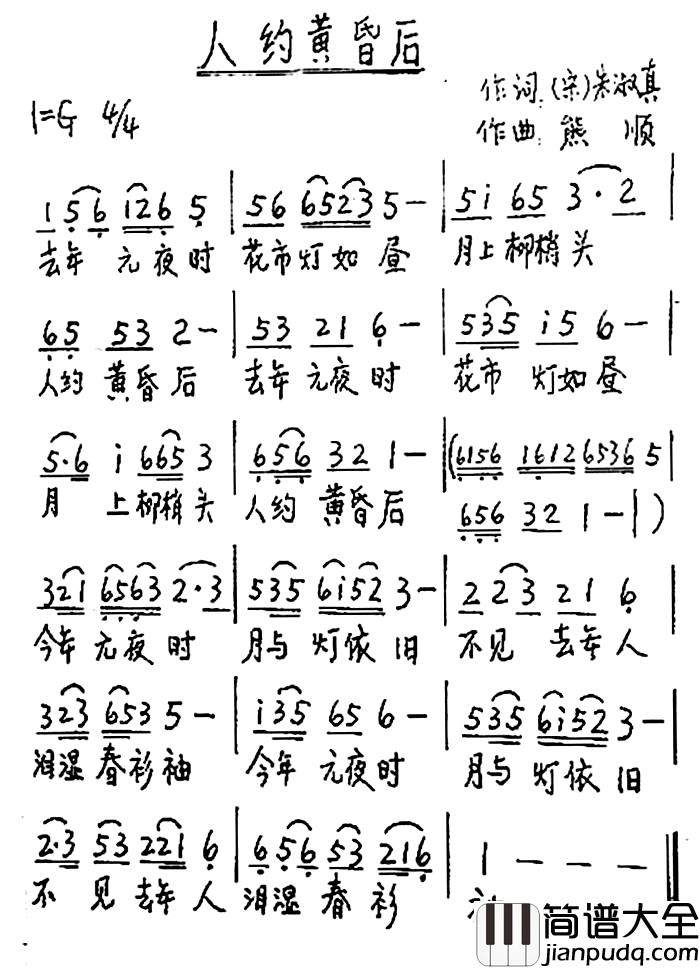 人约黄昏后
作词:(宋)朱淑真
1=G 4/4
作曲:熊 顺
1 5 6 1 2 6 5 | 5 6 6 5 2 3 5 - | 5 i 6 5 3 · 2 |
去年 元夜时 花市灯如昼 月上柳梢头
6 5 5 3 2 - | 5 3 2 1 6 - | 5 3 5 i 5 6 - |
人约 黄昏后 去年 元夜时 花市 灯如昼
5 · 6 i 6 6 5 3 | 6 5 6 3 2 1 - | (6 1 5 6 1 6 1 2 6 5 3 6 5 |
月 上柳梢头 人约 黄昏后
6 5 6 3 2 1 - | )
3 2 1 6 5 6 3 2 · 3 | 5 3 5 6 i 5 2 3 - | 2 2 3 2 1 6 |
今年 元夜时 月与 灯依旧 不见 去年人
3 2 3 6 5 3 5 - | i 3 5 6 5 6 - | 5 3 5 6 i 5 2 3 - |
泪湿 春衫袖 今年 元夜时 月与 灯依旧
2 · 3 5 3 2 2 1 6 | 6 5 6 5 3 2 1 6 | 1 - - - ‖
不 见 去年 人 泪湿 春 衫
简谱大全
jianpudq.com